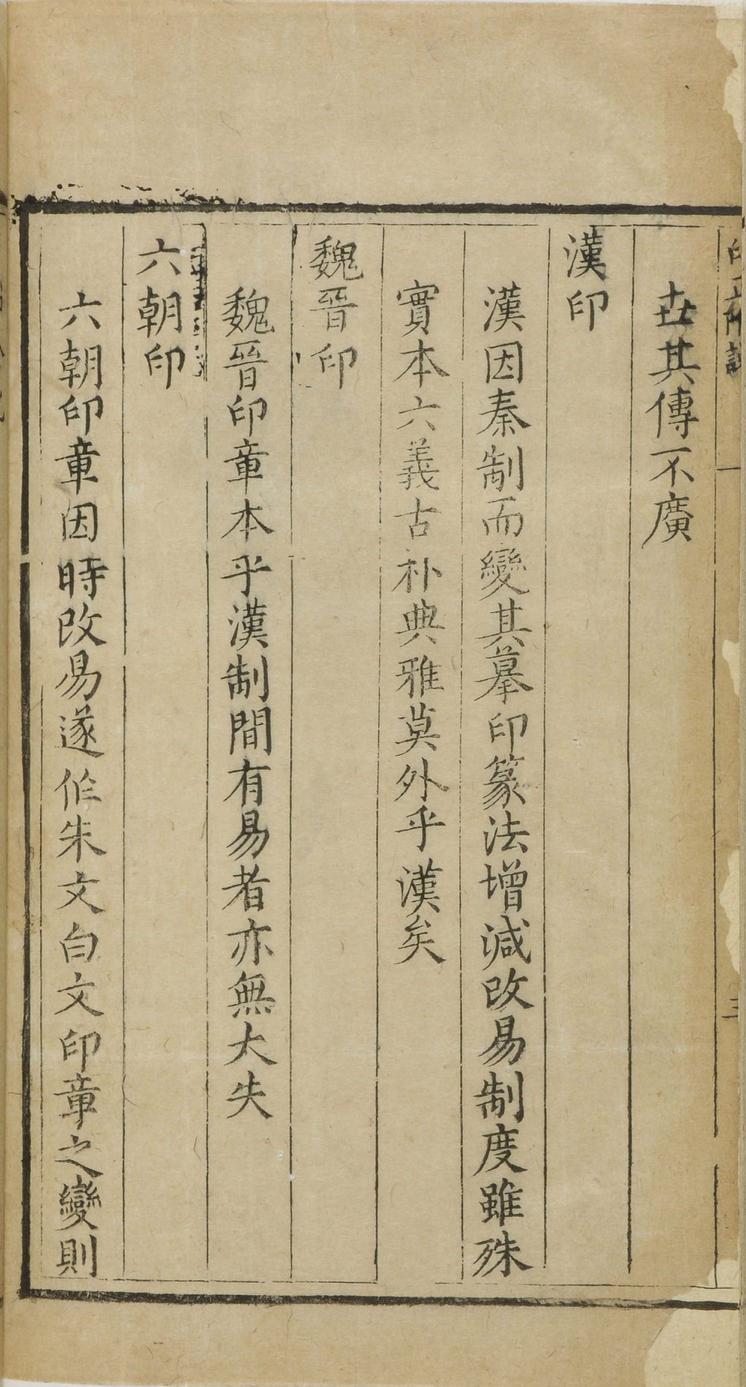 世其傳不廣
漢印
漢因秦制而變其摹印篆法增減改易制度雖殊
實本六義古朴典雅莫外乎漢矣
魏晉印
魏晉印章本乎漢制間有易者亦無大失
六朝印
六朝印章因時改易遂作朱文白文印章之變則